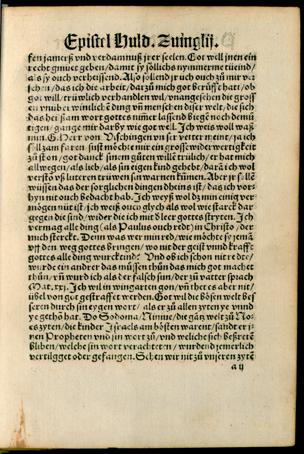 Epistel Huld. Zuinglij.
fen jamerß vnd verdamnuß jrer seelen. Got well jnen ein
recht gmüet geben / damit sy söllichs nymmerme tüeind /
als sy ouch verheissend. Also sollend jr üch ouch zů mir ver
sehen / das ich die arbeit / dar zů mich got berůfft hatt / ob
got will / trüwlich verhandlen wil / vnangesehen die gross
en vnd wunder der menschen diser welt / die sich
das heisam wort gottes nüt lassend biege noch demü
tigen / gange mir darby wie got well. Ich weis wol was
min. G. Herr von Vischingen vnser vetter meint / ja ich
sill zam faren sust möchte mir ein grosse widerwertigkeit
zů ston / got danck sinem gůten will trülich / er hat mich
allwegen / als lieb / als sin eigen kind gehebt / dar vm ich wol
verston vß luteren trüwen sin warnen kummen. Aber jr sölle
wüssen das der sorglichen dingen dheins ist / das ich vor-
hyn nit ouch bedacht hab. Ich weyß wol dz min einig ver
mögen nüt ist / ich weiß ouch wol wie starck dar
gegen die sind / wider die ich mit der leer gottes stryten. Ich
vermag alle ding (als Paulus ouch redt) in Christo / der
mich sterckt. Denn was wer min red / wie möchte sy jenã
vff den weg gottes bringen / wo nit der geist vnnd krafft
gottes alle ding erkünckte? Vnd ob ich schon nit redte /
wurde ein ander das müssen thůn das mich got machet
thůn / vñ wurd ich als der falsch sun / der zů vatter sprach
Mat. xxj. Ich wil in wingarten gon / vñ thet es aber nit /
übel von got gestraffet werden. Got wil die bösen welt bes
seren durch sin eygen wort / als er zů allen zyten ye vnnd
ye gethon hat. Do Sodoma / Ninive / die gantz welt zů No-
es zyten / die kinder Israels am bösten warent / sandt er ji-
nen Propheten vnd sin wort zů / vnd weliche sich beßretẽ
bliben / welche sin wort verachtetẽ / wurdend jemerlich
vertilgget oder gefangen. Sehen wir nit zů vnseren zytẽ
a ij